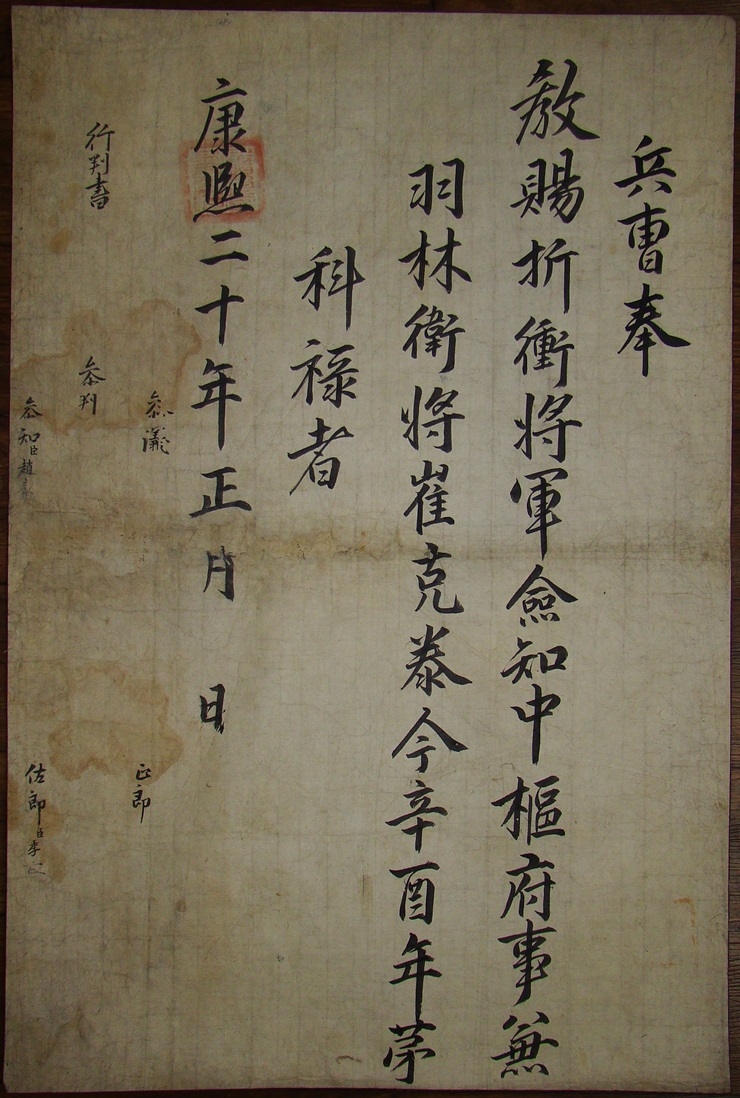 兵曹奉
教賜折衝將軍僉知中樞府事兼
羽林衛將崔克泰今辛酉年第
科祿者
康熙二十年正月 日
行判書
參議
參判
參知臣趙
正郎
佐郎臣李